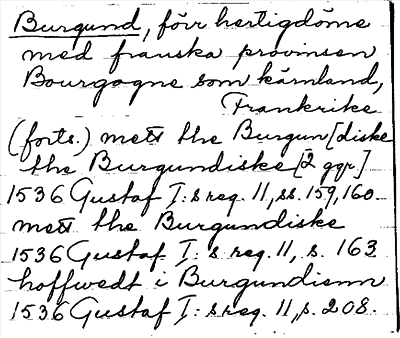 Burgund, förr hertigdöme
med franska provinsen
Bourgogne som kärnland,
Frankrike
(forts.) mett the Burgun[diske
the Burgundiske [2 ggr.]
1536 Gustaf I:s reg. 11, ss. 159, 160
mett the Burgundiske
1536 Gustaf I:s reg. 11, s. 163
hoffwedt i Burgundienn
1536 Gustaf I:s reg. 11, s. 208.